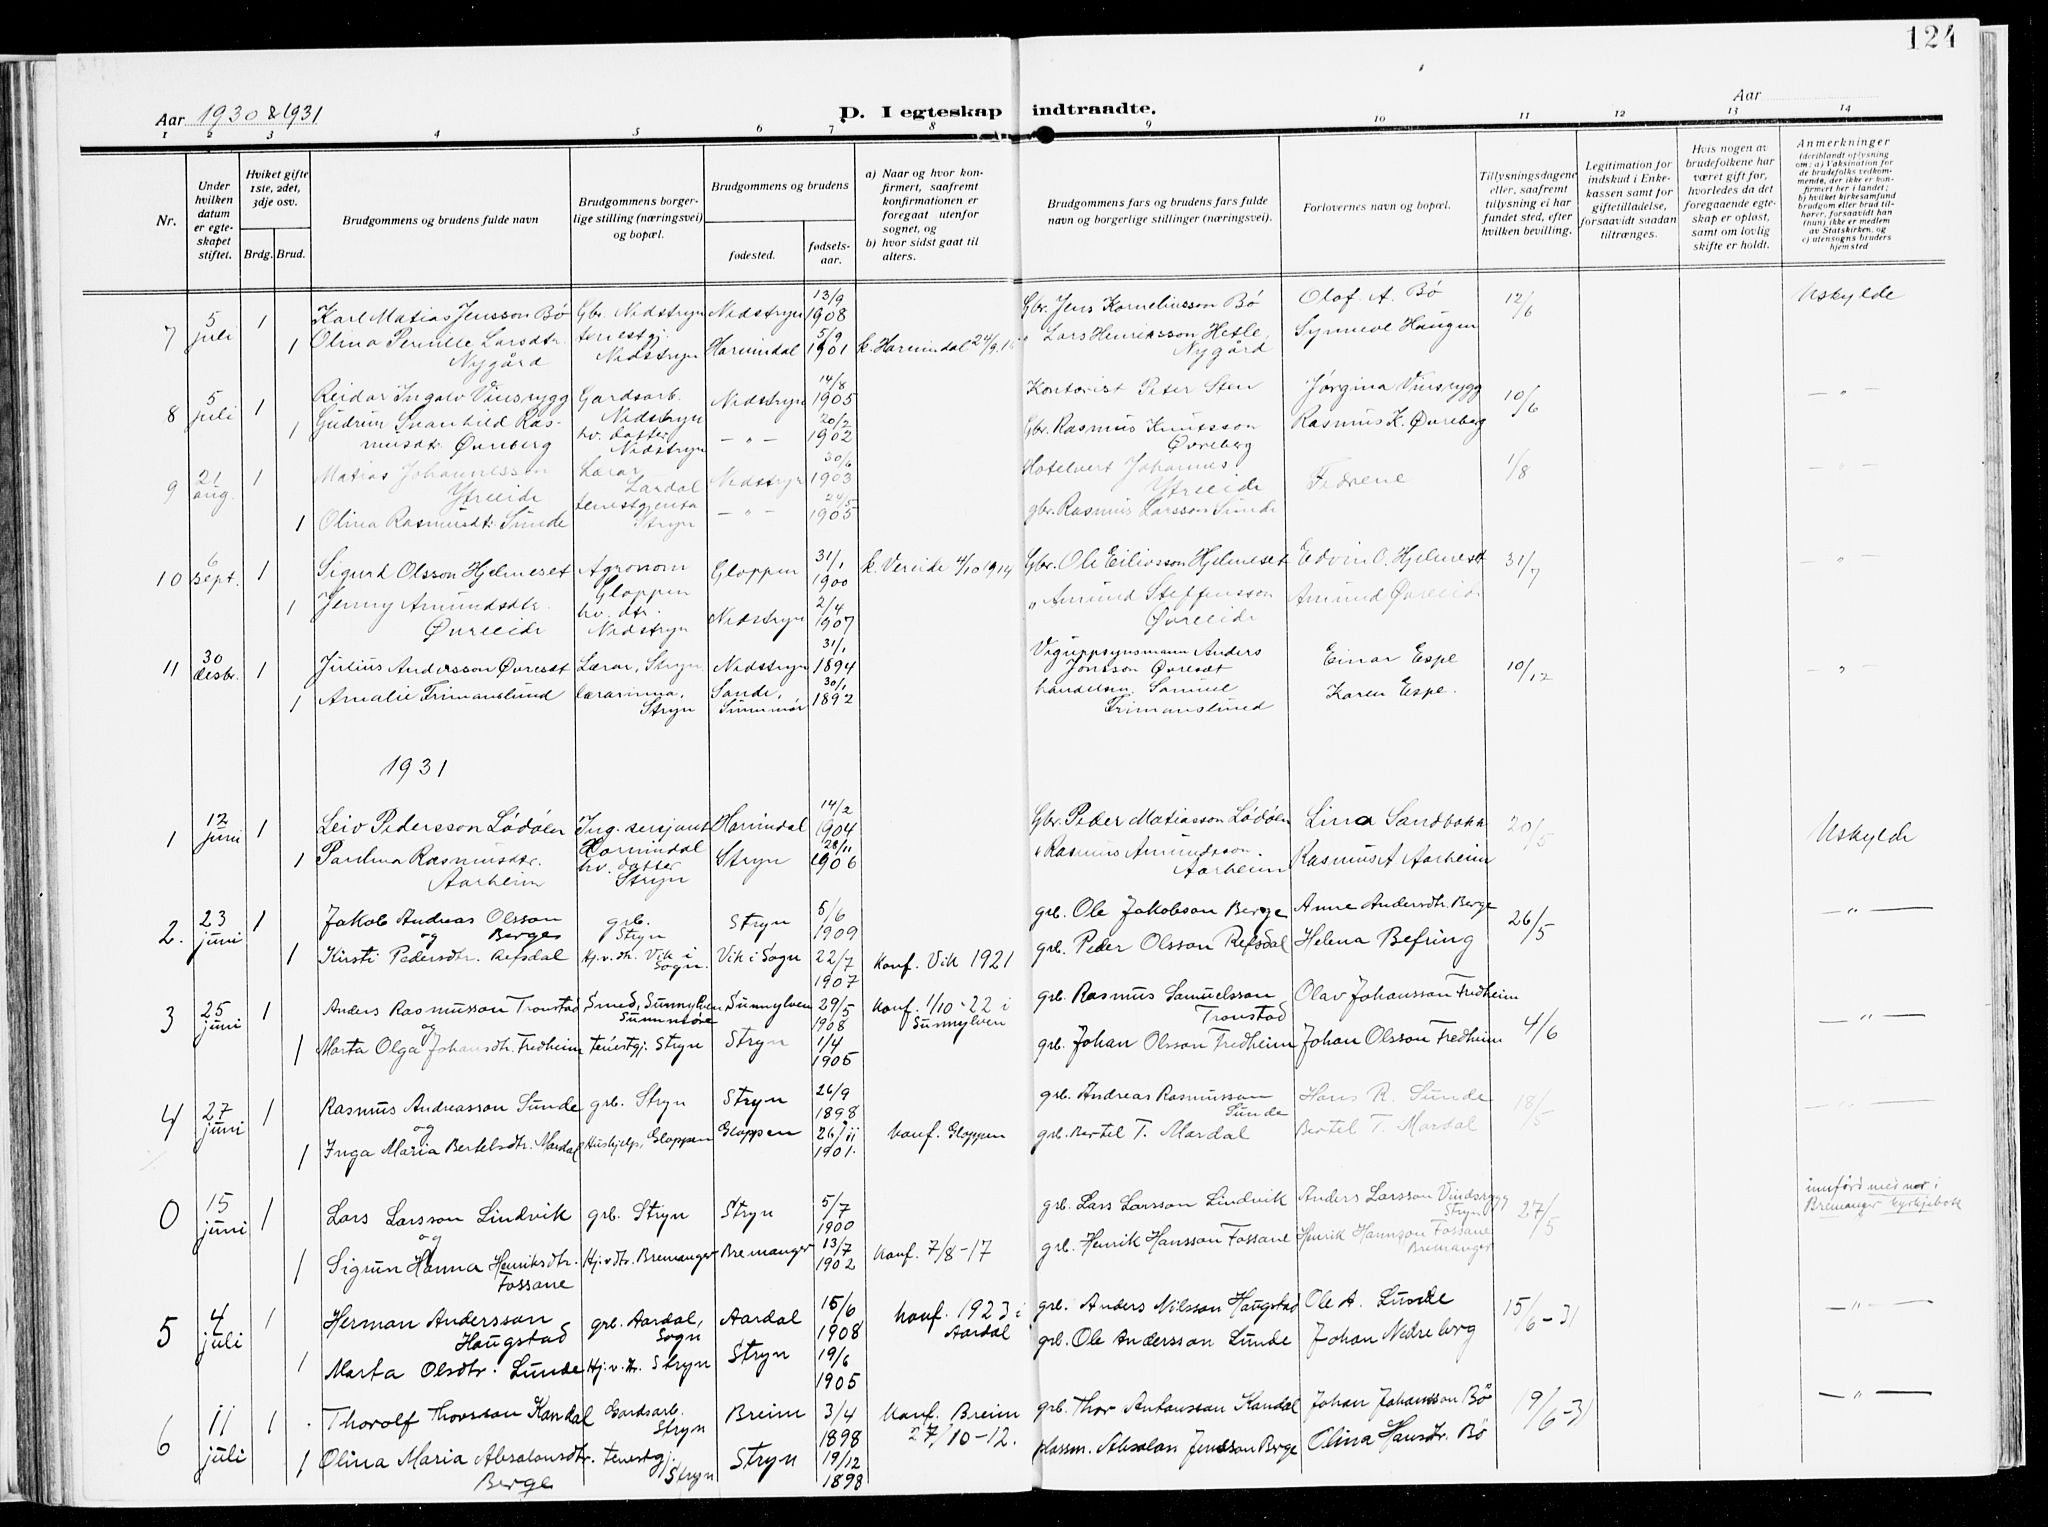 124
Aar 1930 & 1931
D. I egteskap indtraadte.
Aar
1 2 3 4 5 6 7 8 9 10 11 12 13 14
Nr.
Under hvilken datum er egteskapet stiftet.
Hviket gifte 1ste, 2det, 3dje osv.
Brdg. Brud.
Brudgommens og brudens fulde navn
Brudgommens borgerlige stilling (næringsvei) og bopæl.
Brudgommens og brudens
fødested.
fødselsaar.
a) Naar og hvor konfirmert, saafremt konfirmationen er foregaat utenfor sognet, og
b) hvor sidst gaat til alters.
Brudgommens fars og brudens fars fulde navn og borgerlige stillinger (næringsvei).
Forlovernes navn og bopæl.
Tillysningsdagene eller, saafremt tillysning ei har fundet sted, efter hvilken bevilling.
Legitimation for indskud i Enkekassen samt for giftetilladelse, forsaavidt saadan tiltrænges.
Hvis nogen av brudefolkene har været gift før, hvorledes da det foregaaende egteskap er opløst, samt om lovlig skifte er holdt.
Anmerkninger (deriblandt oplysning om: a) Vaksination for de brudefolks vedkommende, der ikke er konfirmert her i landet; b) hvilket kirkesamfund brudgom eller brud tilhører, forsaavidt han (hun) ikke er medlem av Statskirken, og c) utensogns bruders hjemsted
7 5 juli 1 Karl Matias Jensson Bö Gbr. Nedstryn Nedstryn 13/9 1908 Gbr. Jens Korneliusson Bö Olaf A. Bö 12/6 Uskylde
1 Olina Pernille Larsdtr. Nygård tenestgj. Nedstryn Hornindal 5/9 1901 k. Hornindal 24/9 16 " Lars Henriksson Hetle, Nygård Synneve Haugen
8 5 juli 1 Reidar Ingolv Vinsrygg Gardsarb. Nedstryn Nedstryn 14/8 1905 Kontorist Peter Sten Jørgina Vinsrygg 10/6 — " —
1 Gudrun Svanhild Rasmusdt. Øvreberg hv. datter Nedstryn — " — 20/2 1902 Gbr. Rasmus Knutsson Øvreberg Rasmus K. Øvreberg
9 21 aug. 1 Matias Johannesson Ytreeide Lærar Lærdal Nedstryn 30/6 1903 Hotelvert Johannes Ytreeide Fedrene 1/8 — " —
1 Olina Rasmusdt. Sunde tenestgjenta Stryn — " — 24/5 1905 gbr. Rasmus Larsson Sunde
10 6 sept. 1 Sigurd Olsson Hjelmeset Agronom Gloppen Gloppen 31/1 1900 k. Vereide 4/10 1914 Gbr. Ole Eilivsson Hjelmeset Edvin O. Hjelmeset 31/7 — " —
1 Jenny Amundsdtr. Øvreeide hv. dtr. Nedstryn Nedstryn 2/4 1907 " Amund Steffensson Øvreeide Amund Øvreeide
11 30 desbr. 1 Julius Andersson Øvresæt Lærar, Stryn Nedstryn 31/1 1894 Viguppsynsmann Anders Jonsson Øvresæt Einar Espe 10/12 "
1 Amalie Frimanslund lærarinna, Stryn Sande, Sunnmör 30/1 1892 handelsm. Samuel Frimanslund Karen Espe.
1931
1 12 juni 1 Leiv Pedersson Lødøen Ing. sersjant Hornindal Hornindal 14/2 1904 Gbr. Peder Matiasson Lødøen Lina Sandbakk 20/5 Uskylde
1 Paulina Rasmusdtr. Aarheim hv. datter Stryn Stryn 28/11 1906 " Rasmus Amundsson Aarheim Rasmus A Aarheim
2. 23 juni 1 Jakob Andreas Olsson Berge grb. Stryn Stryn 5/6 1909 grb. Ole Jakobson Berge Anne Andersdtr. Berge 26/5 — " —
og
1 Kirsti Pedersdtr. Refsdal Hj.v.dtr. Vik i Sogn. Vik i Sogn 22/7 1907 Konf. Vik 1921 grb. Peder Olsson Refsdal Helena Befring
3 25 juni 1 Anders Rasmusson Tronstad Smed, Sunnylven Sunnmöre Sunnylven 29/5 1908 Konf. 1/10-22 i Sunnylven grb. Rasmus Samuelsson Tronstad Olav Johansson Fredheim 4/6 — " —
og
1 Marta Olga Johansdtr. Fredheim tenestgj. Stryn Stryn 1/4 1905 grb. Johan Olsson Fredheim Johan Olsson Fredheim
4 27 juni 1 Rasmus Andreasson Sunde grb. Stryn Stryn 26/9 1898 grb. Andreas Rasmusson Sunde Hans R. Sunde 18/5 — " —
og
1 Inga Maria Bertelsdtr. Mardal Hushjelp, Gloppen Gloppen 26/11 1901. Konf. Gloppen grb. Bertel T. Mardal Bertel T. Mardal
0 15 juni 1 Lars Larsson Lindvik grb. Stryn Stryn 5/7 1900 grb. Lars Larsson Lindvik Anders Larsson Vindsrygg Stryn 27/5 innförd med nor i Bremanger kyrkjebok
og
1 Sigrun Hanna Henriksdtr. Fossane Hj.v.dtr. Bremanger Bremanger 13/7 1902 Konf. 7/8-17 grb. Henrik Hansson Fossane Henrik Hansson Fossane Bremanger
5 4 juli 1 Herman Andersson Haugstad grb. Aardal, Sogn Aardal 15/6 1908 Konf. 1923 i Aardal grb. Anders Nilsson Haugstad Ole A. Sunde 15/6-31 — " —
1 Marta Olsdtr. Sunde Hj.v.dtr. Stryn Stryn 19/6 1905 grb. Ole Andersson Sunde Johan Nedreberg
6 11 juli 1 Thorolf Thorsson Kandal Gardsarb. Stryn Breim 3/4 1898 Konf. Breim 27/10-12. grb. Thor Antonsson Kandal Johan Johansson Bö 19/6-31 — " —
1 Olina Maria Absalonsdtr. Berge tenestgj. Stryn Stryn 19/12 1898 plassm. Absalon Jensson Berge Olina Hansdtr. Bö